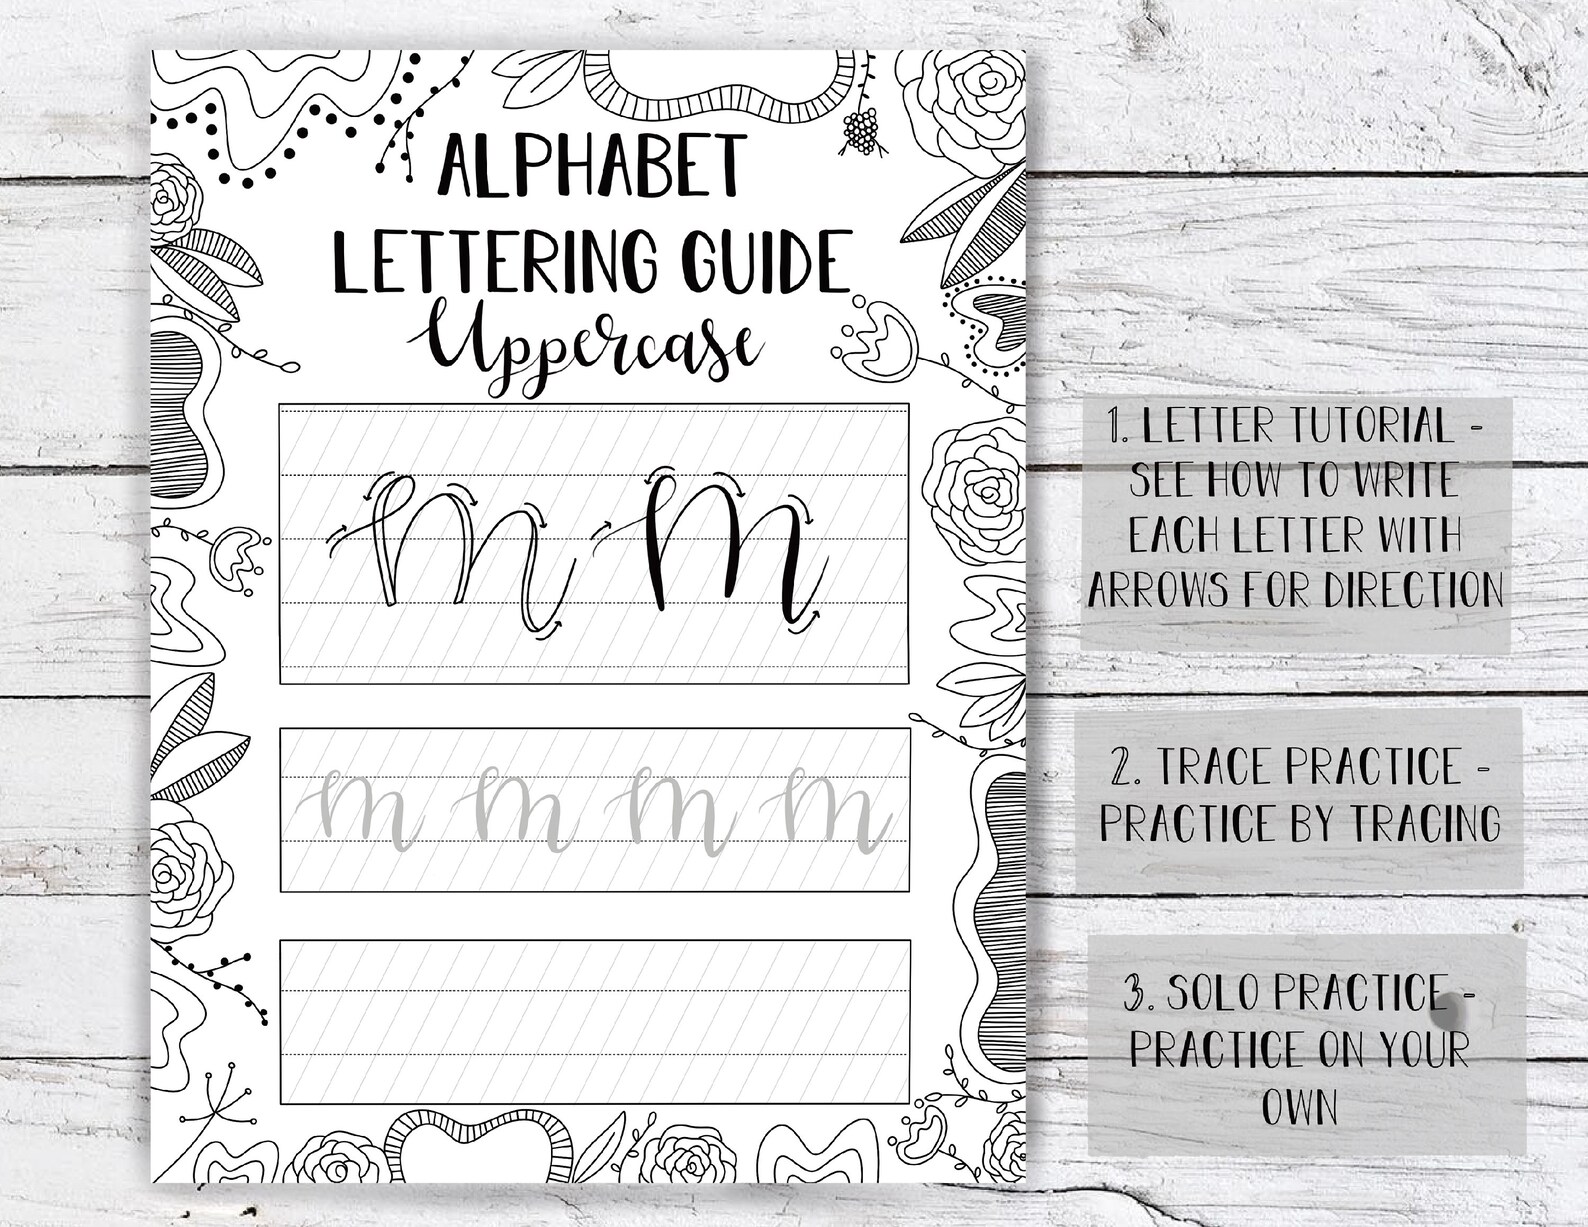 ALPHABET
LETTERING GUIDE
Uppercase
M M
M M M M
1. LETTER TUTORIAL -
SEE HOW TO WRITE
EACH LETTER WITH
ARROWS FOR DIRECTION
2. TRACE PRACTICE -
PRACTICE BY TRACING
3. SOLO PRACTICE -
PRACTICE ON YOUR
OWN